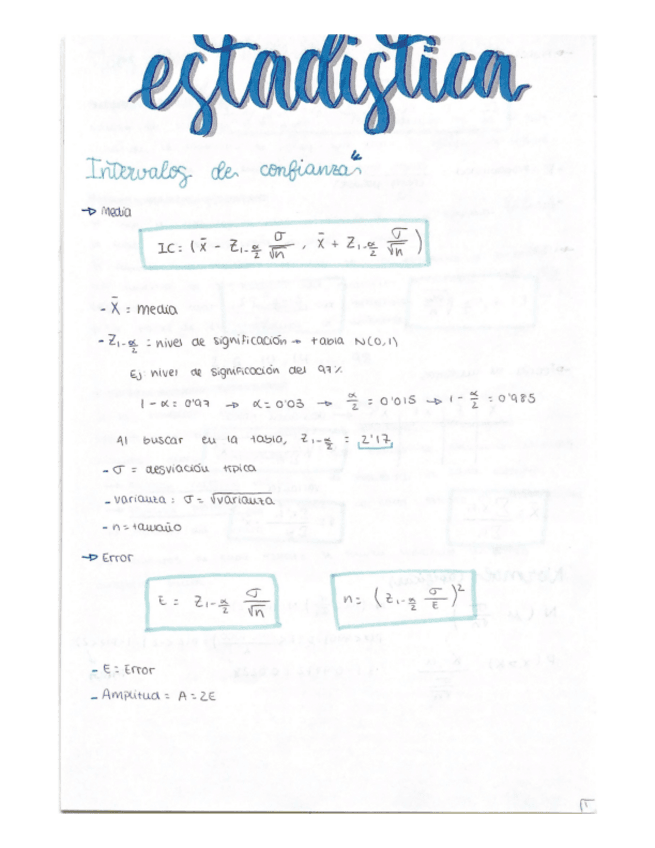 estadística
Intervalos de confianza
→ Media
IC: ( x̄ - Z₁₋α/₂ σ/√n , x̄ + Z₁₋α/₂ σ/√n )
- X̄ = media
- Z₁₋α/₂ : nivel de significación → tabla N(0,1)
Ej: nivel de significación del 97%
1-α = 0'97 → α = 0'03 → α/2 = 0'015 → 1 - α/2 = 0'985
Al buscar en la tabla, Z₁₋α/₂ = 2'17
- σ = desviación típica
- varianza : σ = √varianza
- n = tamaño
→ Error
E = Z₁₋α/₂ σ/√n
n = (Z₁₋α/₂ σ/E)²
- E = Error
- Amplitud = A = 2E